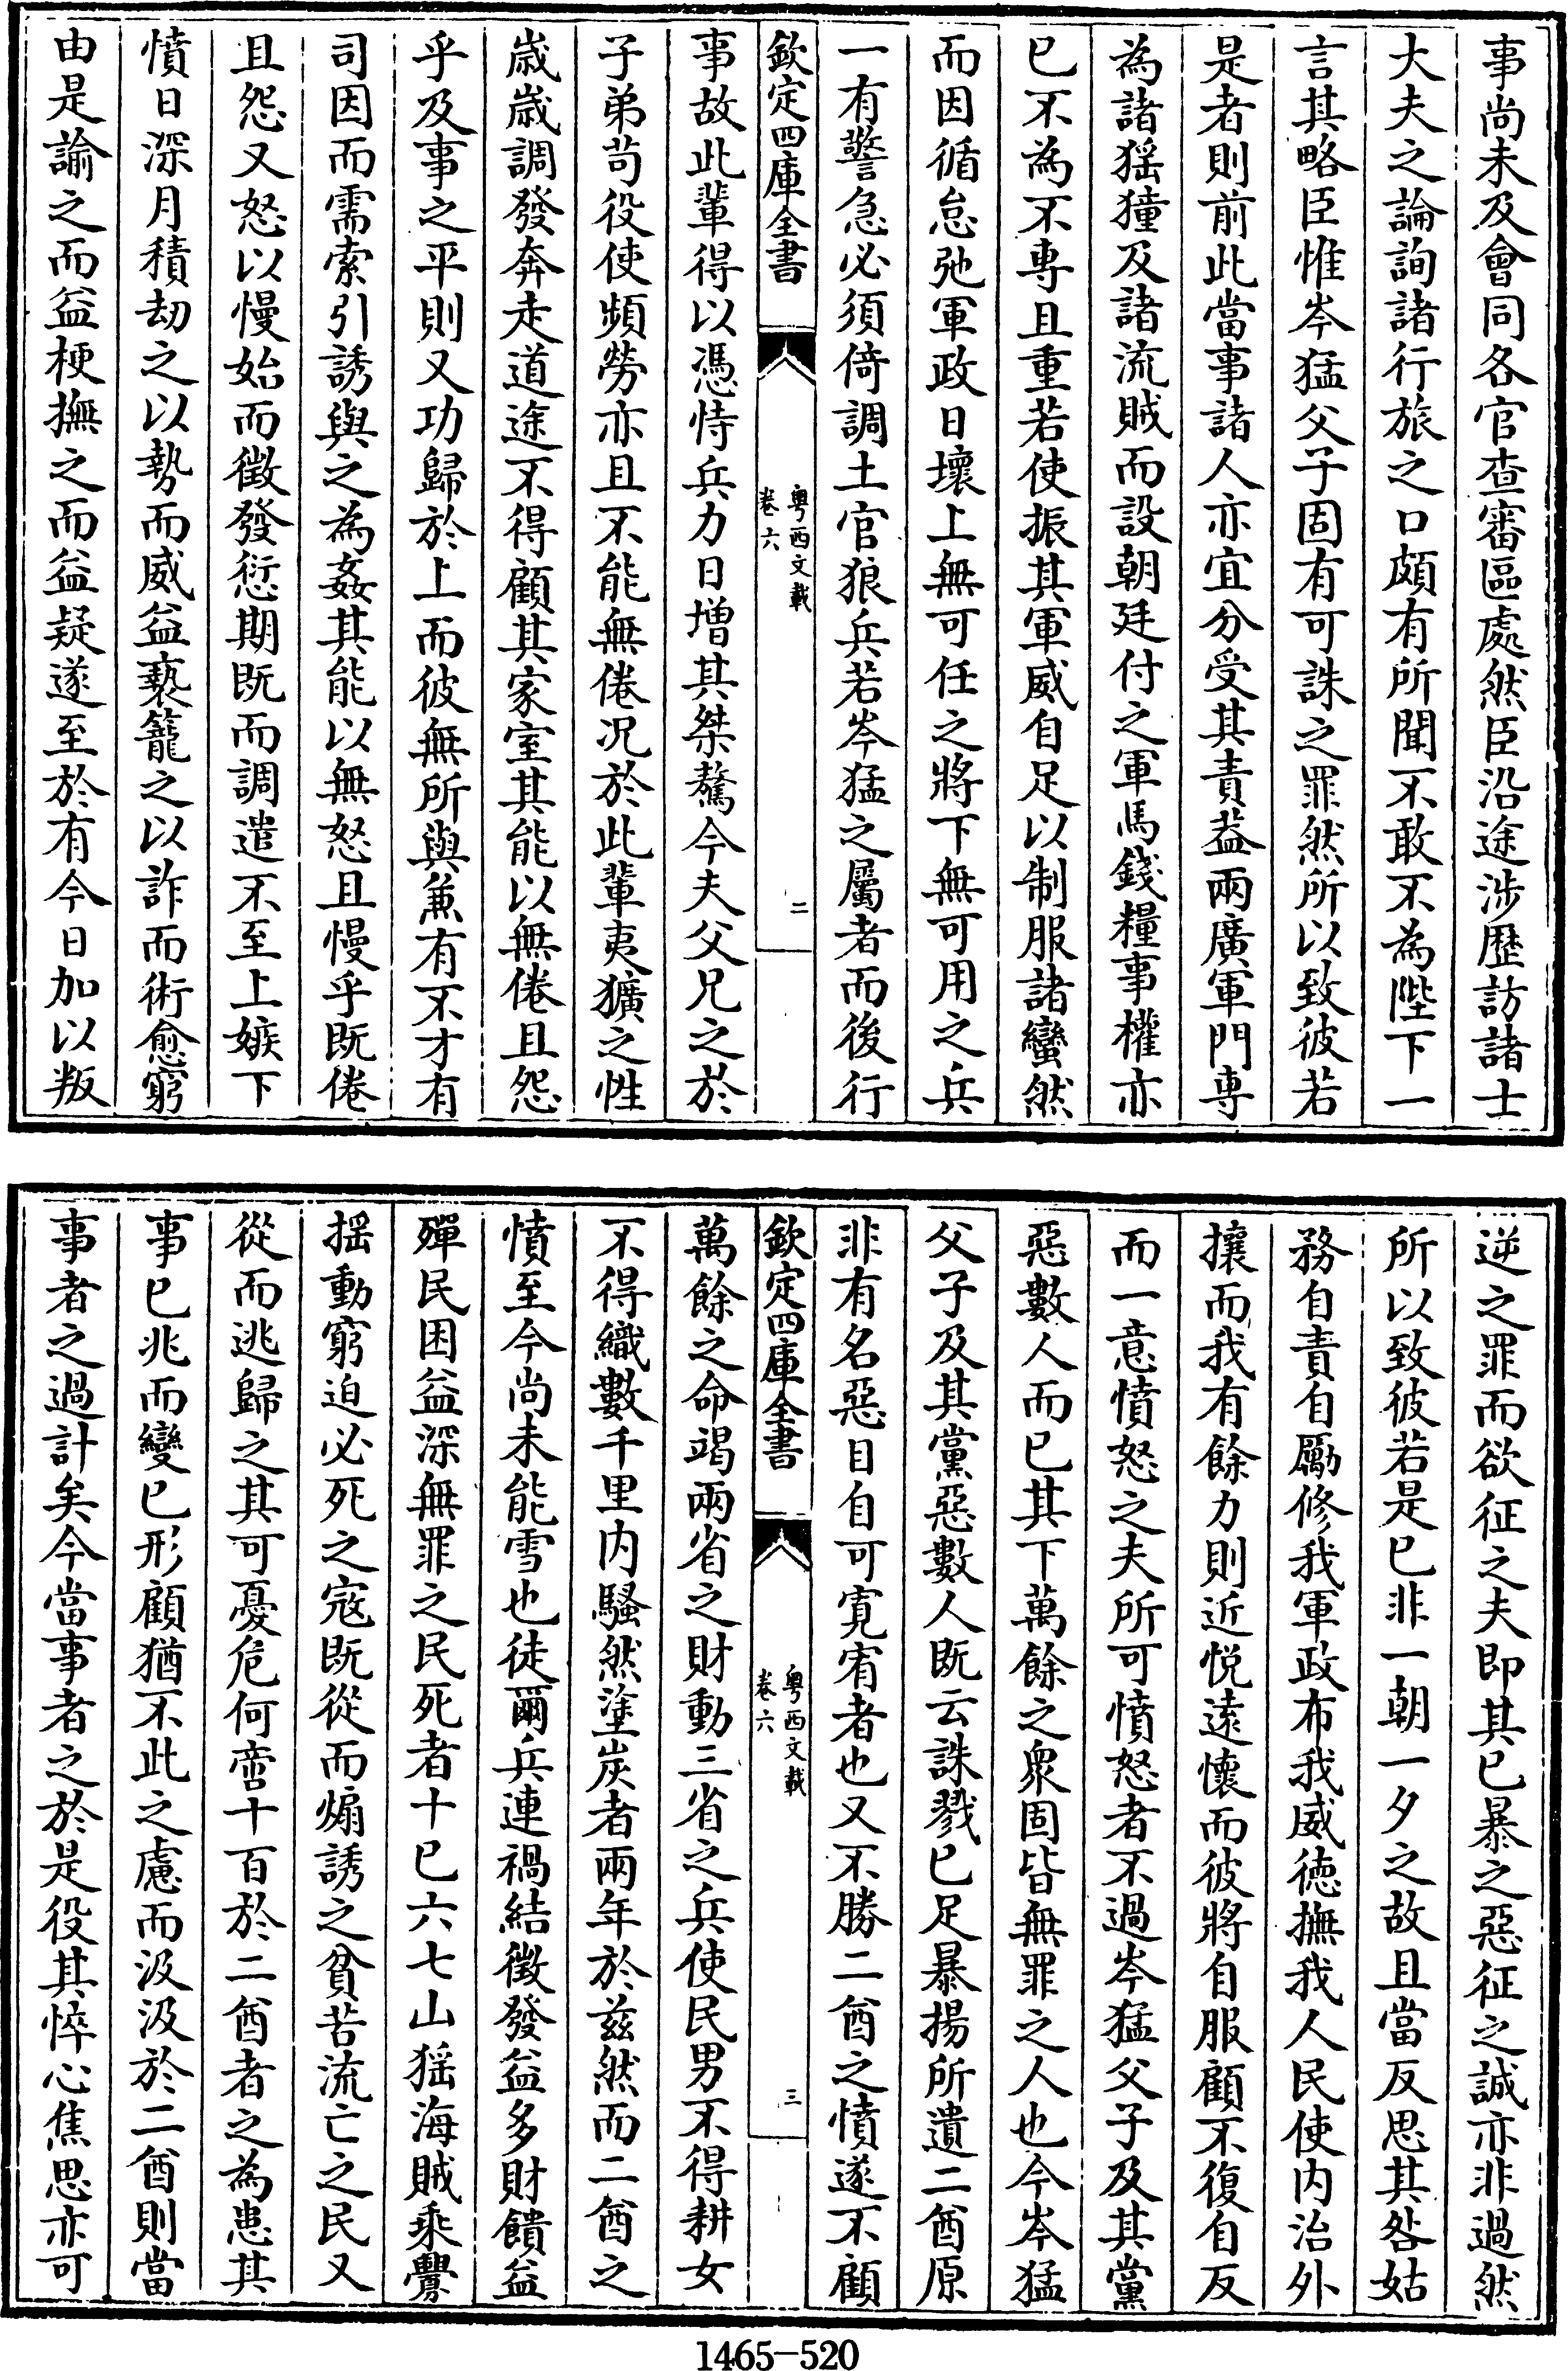 事尚未及會同各官查審區處然臣沿途涉歴訪諸士
大夫之論詢諸行旅之口頗有所聞不敢不為陛下一
言其略臣惟岑猛父子固有可誅之罪然所以致彼若
是者則前此當事諸人亦宜分受其責葢兩廣軍門專
為諸猺獞及諸流賊而設朝廷付之軍馬錢糧事權亦
已不為不專且重若使振其軍威自足以制服諸蠻然
而因循怠弛軍政日壞上無可任之將下無可用之兵
一有警急必須倚調土官狼兵若岑猛之屬者而後行
欽定四庫全書
粤西文載
卷六
二
事故此輩得以馮恃兵力日增其桀驁今夫父兄之於
子弟茍役使頻勞亦且不能無倦况於此輩夷獷之性
歳歳調發奔走道途不得顧其家室其能以無倦且怨
乎及事之平則又功歸於上而彼無所與兼有不才有
司因而需索引誘與之為姦其能以無怒且慢乎既倦
且怨又怒以慢始而徵發愆期既而調遣不至上嫉下
憤日深月積劫之以勢而威益䙝籠之以詐而術愈窮
由是諭之而益梗撫之而益疑遂至於有今日加以叛
逆之罪而欲征之夫即其已暴之惡征之誠亦非過然
所以致彼若是已非一朝一夕之故且當反思其咎姑
務自責自勵修我軍政布我威徳撫我人民使内治外
攘而我有餘力則近悦逺懷而彼將自服顧不復自反
而一意憤怒之夫所可憤怒者不過岑猛父子及其黨
惡數人而已其下萬餘之衆固皆無罪之人也今岑猛
父子及其黨惡數人既云誅戮已足暴揚所遺二酋原
非有名惡目自可寛宥者也又不勝二酋之憤遂不顧
欽定四庫全書
粤西文載
卷六
三
萬餘之命竭兩省之財動三省之兵使民男不得耕女
不得織數千里内騷然塗炭者兩年於兹然而二酋之
憤至今尚未能雪也徒爾兵連禍結徵發益多財饋益
殫民困益深無罪之民死者十已六七山猺海賊乘釁
揺動窮迫必死之冦既從而煽誘之貧苦流亡之民又
從而逃歸之其可憂危何啻十百於二酋者之為患其
事已兆而變已形顧猶不此之慮而汲汲於二酋則當
事者之過計矣今當事者之於是役其悴心焦思亦可
1465-520